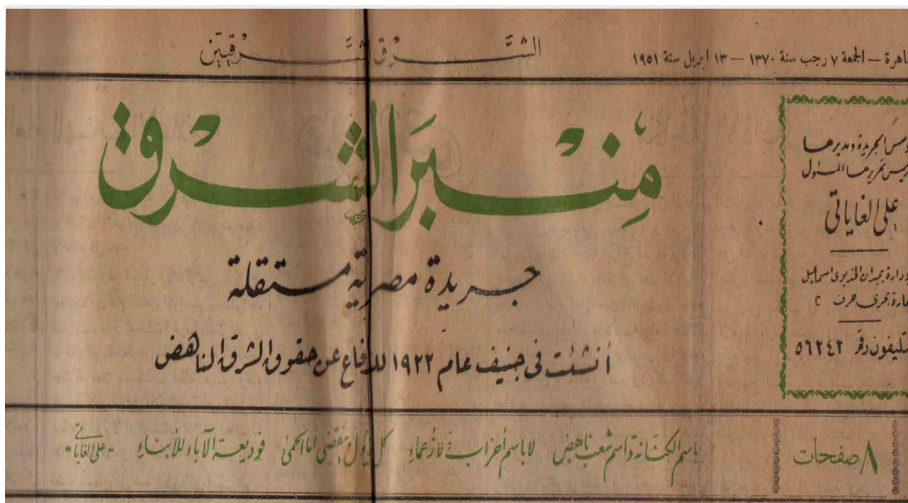 الشرق للشرقيين
اهرة – الجمعة ٧ رجب سنة ١٣٧٠ – ١٣ ابريل سنة ١٩٥١
منبر الشرق
جريدة مصرية مستقلة
أنشئت فى جنيف عام ١٩٢٢ للدفاع عن حقوق الشرق الناهض
الجريدة ومديرها
تحريرها المسئول
على الغاياتى
بميدان الخديوى اسماعيل
حرف ٢
تليفون رقم ٥٦٢٤٢
٨ صفحات
باسم الكنانة واسم شعب ناهض لا باسم أحزاب ولا زعماء كل يزول وينقضى أما الحمى فوديعة الآباء للأبناء "على الغاياتى"